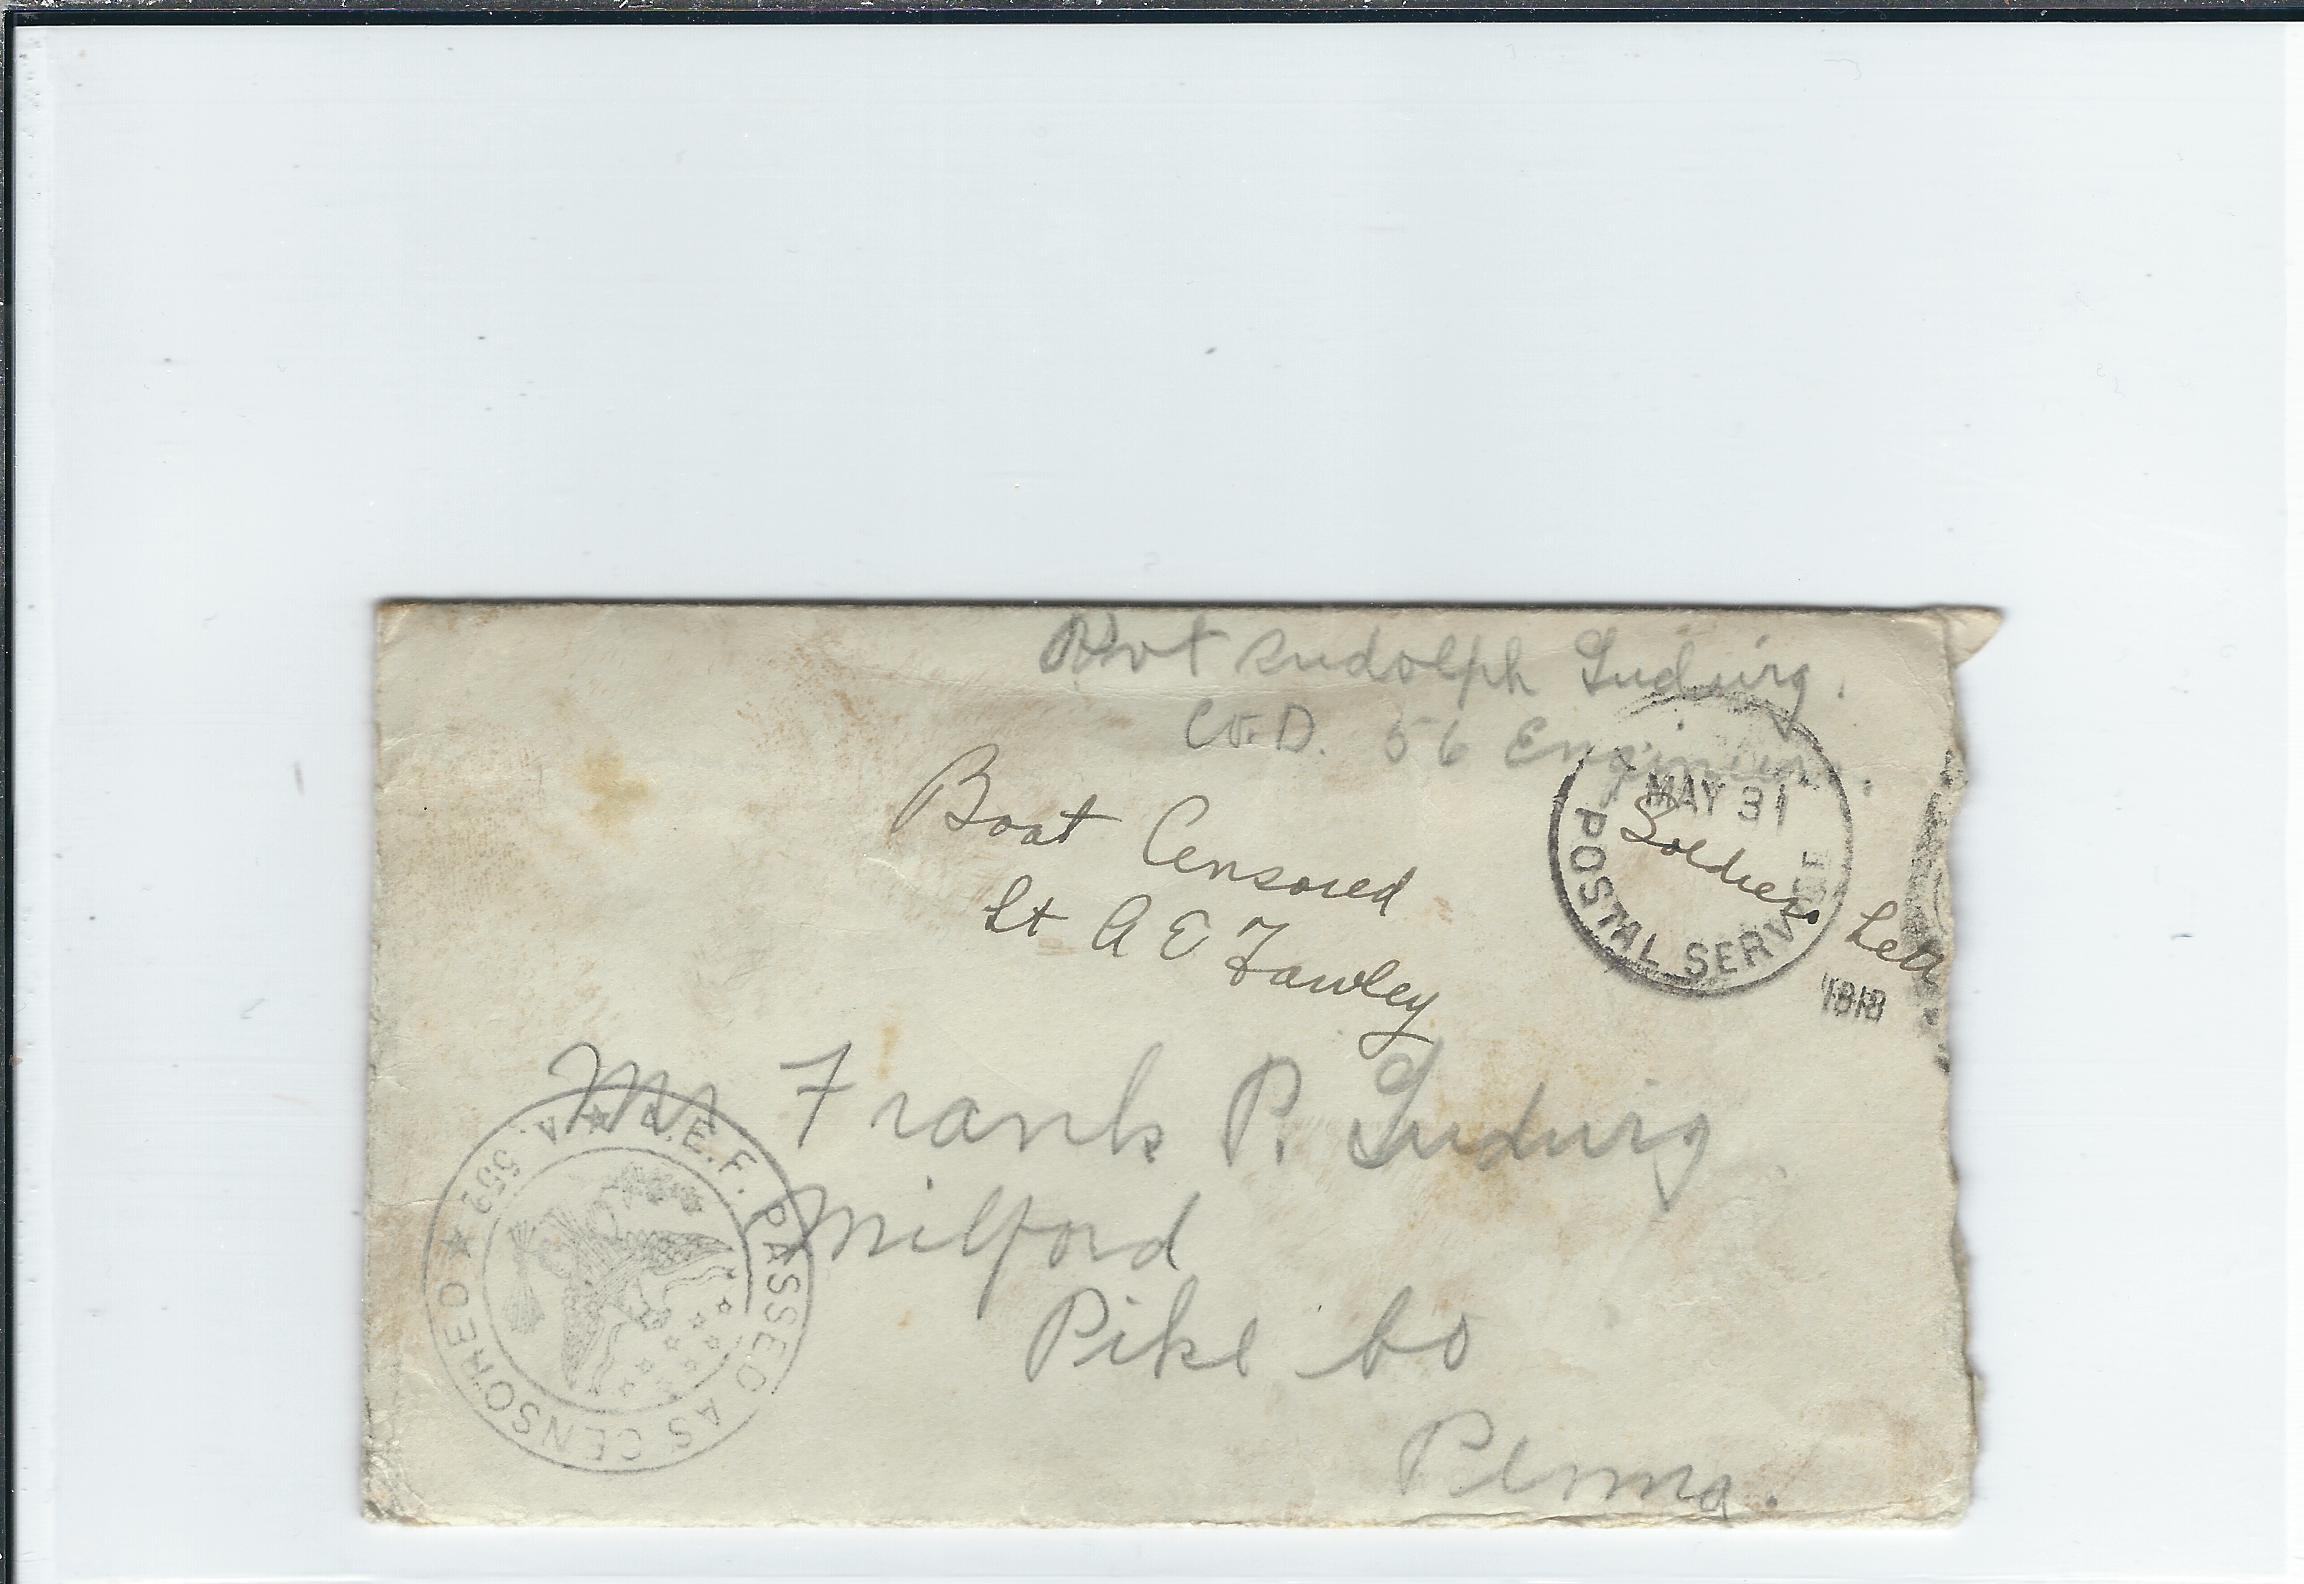 Pvt Rudolph Ludwig.
Co. D. 56 Engineers.
MAY 31
POSTAL SERVICE
Soldiers Lett
Boat Censored
Lt A E Fawley
Mr Frank P. Ludwig
Milford
Pike Co
Penna.
A.E.F. PASSED AS CENSORED
A. 5592